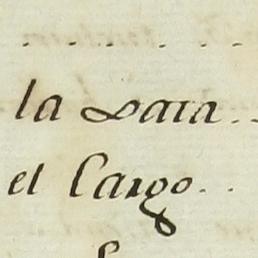 la Data..
el Cargo..